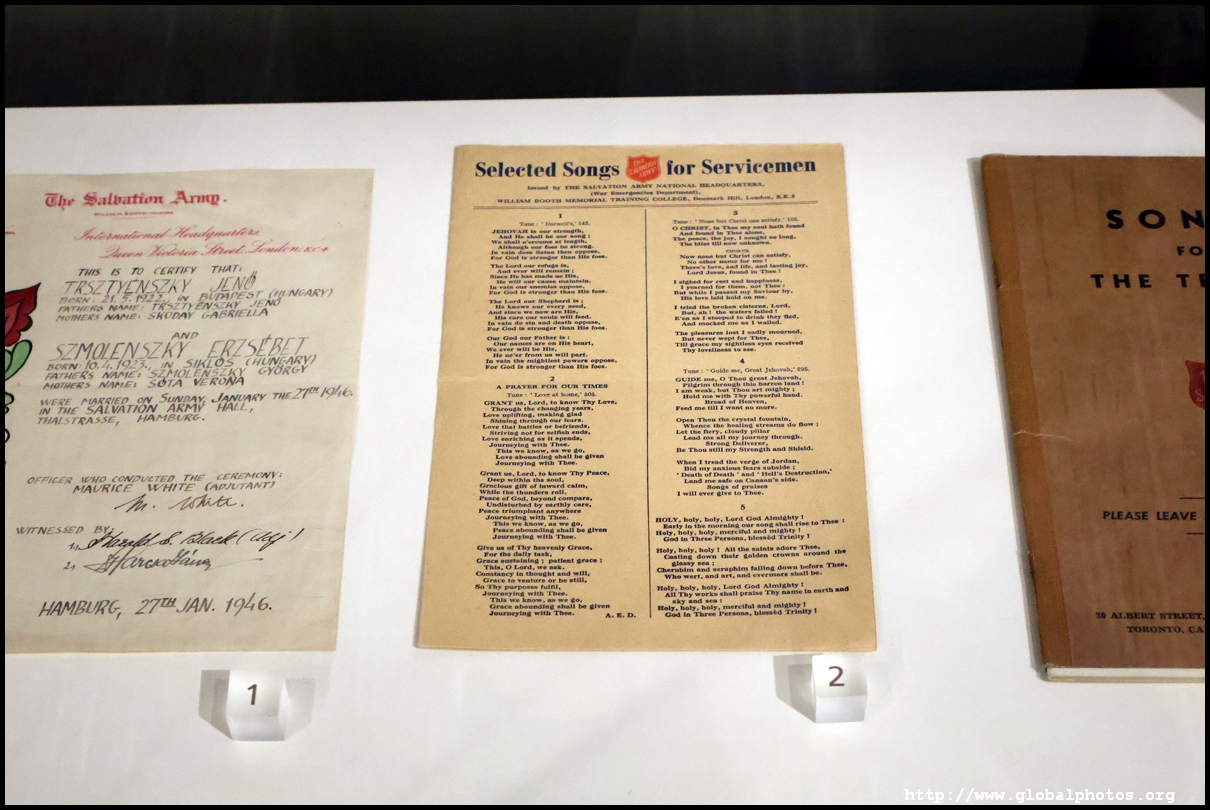 The Salvation Army.
WILLIAM BOOTH FOUNDER
International Headquarters,
Queen Victoria Street. London. E.C.4.
THIS IS TO CERTIFY THAT:
TRSZTYENSZKY JENŐ
BORN: 21. 5. 1922. IN BUDAPEST (HUNGARY)
FATHERS NAME: TRSZTYENSZKY JENŐ
MOTHERS NAME: SKODAY GABRIELLA
AND
SZMOLENSZKY ERZSÉBET
BORN: 10. 4. 1925., IN SIKLÓS (HUNGARY)
FATHERS NAME: SZMOLENSZKY GYÖRGY
MOTHERS NAME: SÓTA VERONA
WERE MARRIED ON SUNDAY, JANUARY THE 27TH 1946.
IN THE SALVATION ARMY HALL,
THALSTRASSE, HAMBURG.
OFFICER WHO CONDUCTED THE CEREMONY:
MAURICE WHITE (ADJUTANT)
M. White.
WITNESSED BY:
1,
2,
HAMBURG, 27TH JAN. 1946.
1
Selected Songs THE SALVATION ARMY for Servicemen
Issued by THE SALVATION ARMY NATIONAL HEADQUARTERS,
(War Emergencies Department),
WILLIAM BOOTH MEMORIAL TRAINING COLLEGE, Denmark Hill, London, S.E.5
1
Tune: 'Darwell's,' 142.
JEHOVAH is our strength,
And He shall be our song;
We shall o'ercome at length,
Although our foes be strong.
In vain does Satan then oppose,
For God is stronger than His foes.
The Lord our refuge is,
And ever will remain;
Since He has made us His,
He will our cause maintain.
In vain our enemies oppose,
For God is stronger than His foes.
The Lord our Shepherd is;
He knows our every need,
And since we now are His,
His care our souls will feed.
In vain do sin and death oppose,
For God is stronger than His foes.
Our God our Father is:
Our names are on His heart,
We ever will be His,
He ne'er from us will part.
In vain the mightiest powers oppose,
For God is stronger than His foes.
2
A PRAYER FOR OUR TIMES
Tune: 'Love at home,' 503.
GRANT us, Lord, to know Thy Love,
Through the changing years,
Love uplifting, making glad
Shining through our fears.
Love that battles or befriends,
Striving not for selfish ends,
Love enriching as it spends,
Journeying with Thee.
This we know, as we go,
Love abounding shall be given
Journeying with Thee.
Grant us, Lord, to know Thy Peace,
Deep within the soul,
Gracious gift of inward calm,
While the thunders roll.
Peace of God, beyond compare,
Undisturbed by earthly care,
Peace triumphant anywhere
Journeying with Thee.
This we know, as we go,
Peace abounding shall be given
Journeying with Thee.
Give us of Thy heavenly Grace,
For the daily task,
Grace sustaining; patient grace:
This, O Lord, we ask.
Constancy in thought and will,
Grace to venture or be still,
So Thy purposes fulfil,
Journeying with Thee.
This we know, as we go,
Grace abounding shall be given
Journeying with Thee. A. E. D.
3
Tune: 'None but Christ can satisfy,'
O CHRIST, in Thee my soul hath found
And found in Thee alone,
The peace, the joy, I sought so long,
The bliss till now unknown.
CHORUS
Now none but Christ can satisfy,
No other name for me!
There's love, and life, and lasting joy,
Lord Jesus, found in Thee!
I sighed for rest and happiness,
I yearned for them, not Thee:
But while I passed my Saviour by,
His love laid hold on me.
I tried the broken cisterns, Lord,
But, ah! the waters failed!
E'en as I stooped to drink they fled,
And mocked me as I wailed.
The pleasures lost I sadly mourned,
But never wept for Thee,
Till grace my sightless eyes received
Thy loveliness to see.
4
Tune: 'Guide me, Great Jehovah,' 295.
GUIDE me, O Thou great Jehovah,
Pilgrim through this barren land!
I am weak, but Thou art mighty;
Hold me with Thy powerful hand.
Bread of Heaven,
Feed me till I want no more.
Open Thou the crystal fountain,
Whence the healing streams do flow;
Let the fiery, cloudy pillar
Lead me all my journey through.
Strong Deliverer,
Be Thou still my Strength and Shield.
When I tread the verge of Jordan,
Bid my anxious fears subside;
'Death of Death' and 'Hell's Destruction,'
Land me safe on Canaan's side.
Songs of praises
I will ever give to Thee.
5
HOLY, holy, holy, Lord God Almighty!
Early in the morning our song shall rise to Thee:
Holy, holy, holy, merciful and mighty!
God in Three Persons, blessèd Trinity!
Holy, holy, holy! All the saints adore Thee,
Casting down their golden crowns around the
glassy sea;
Cherubim and seraphim falling down before Thee,
Who wert, and art, and evermore shall be.
Holy, holy, holy, Lord God Almighty!
All Thy works shall praise Thy name in earth and
sky and sea:
Holy, holy, holy, merciful and mighty!
God in Three Persons, blessèd Trinity!
2
SON
FO
THE T
PLEASE LEAVE
20 ALBERT STREET,
TORONTO, CA
http://www.globalphotos.org